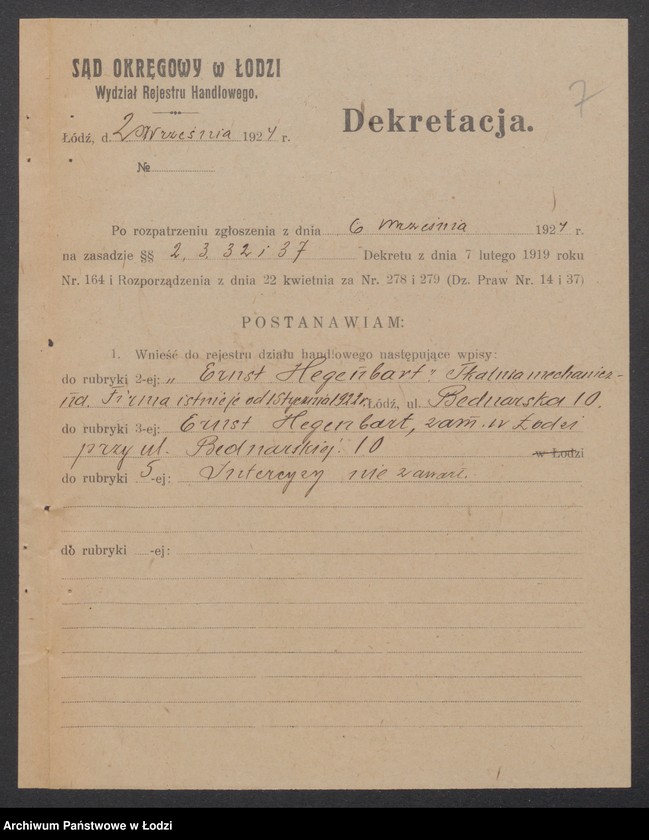 SĄD OKRĘGOWY w ŁODZI
Wydział Rejestru Handlowego.
7
Dekretacja.
Łódź, d. 2 Września 1924 r.
№
Po rozpatrzeniu zgłoszenia z dnia 6 września 1924 r.
na zasadzie §§ 2, 3, 32 i 37 Dekretu z dnia 7 lutego 1919 roku
Nr. 164 i Rozporządzenia z dnia 22 kwietnia za Nr. 278 i 279 (Dz. Praw Nr. 14 i 37)
POSTANAWIAM:
1. Wnieść do rejestru działu handlowego następujące wpisy:
do rubryki 2-ej: „Ernst Hegenbart". Tkalnia mechanicz-
na. Firma istnieje od 1 Stycznia 1922 r. Łódź, ul. Bednarska 10.
do rubryki 3-ej: Ernst Hegenbart, zam. w Łodzi
przy ul. Bednarskiej 10 w Łodzi
do rubryki 5-ej: Intercyzy nie zawarł.
do rubryki -ej:
Archiwum Państwowe w Łodzi